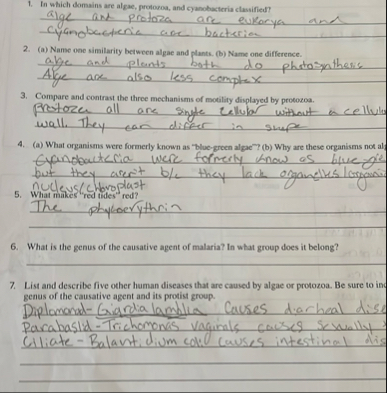 1. In which domains are algae, protozoa, and cyanobacteria classified?
alge and protoza are eukorya and
cyanobacteria are bacteria
2. (a) Name one similarity between algae and plants. (b) Name one difference.
alge and plants both do photosynthesis
Alge are also less complex
3. Compare and contrast the three mechanisms of motility displayed by protozoa.
Protozea all are single cellular without a cellula
wall. They can differ in shape
4. (a) What organisms were formerly known as "blue-green algae"? (b) Why are these organisms not al
Cyanobacteria were formerly know as blue
but they aren't b/c they lack organelles/organi
nucleus/chloroplast
5. What makes "red tides" red?
The phyboerythrin
6. What is the genus of the causative agent of malaria? In what group does it belong?
7. List and describe five other human diseases that are caused by algae or protozoa. Be sure to inc
genus of the causative agent and its protist group.
Diplomonad - Gardalamblia Causes diarheal dise
Parabaslid - Trichomonas vaginals causes sexually
Ciliate - Balant.dium coli causes intestinal dis